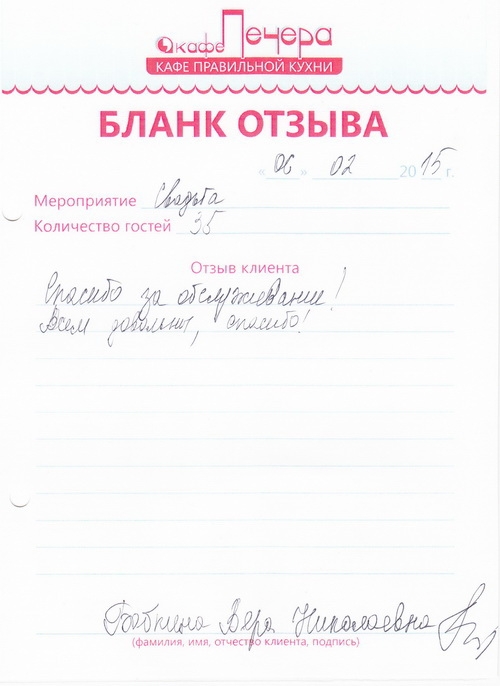 кафе Печера
КАФЕ ПРАВИЛЬНОЙ КУХНИ
БЛАНК ОТЗЫВА
«06» 02 2015 г.
Мероприятие Свадьба
Количество гостей 35
Отзыв клиента
Спасибо за обслуживание!
Всем довольны, спасибо!
Бабкина Вера Николаевна
(фамилия, имя, отчество клиента, подпись)